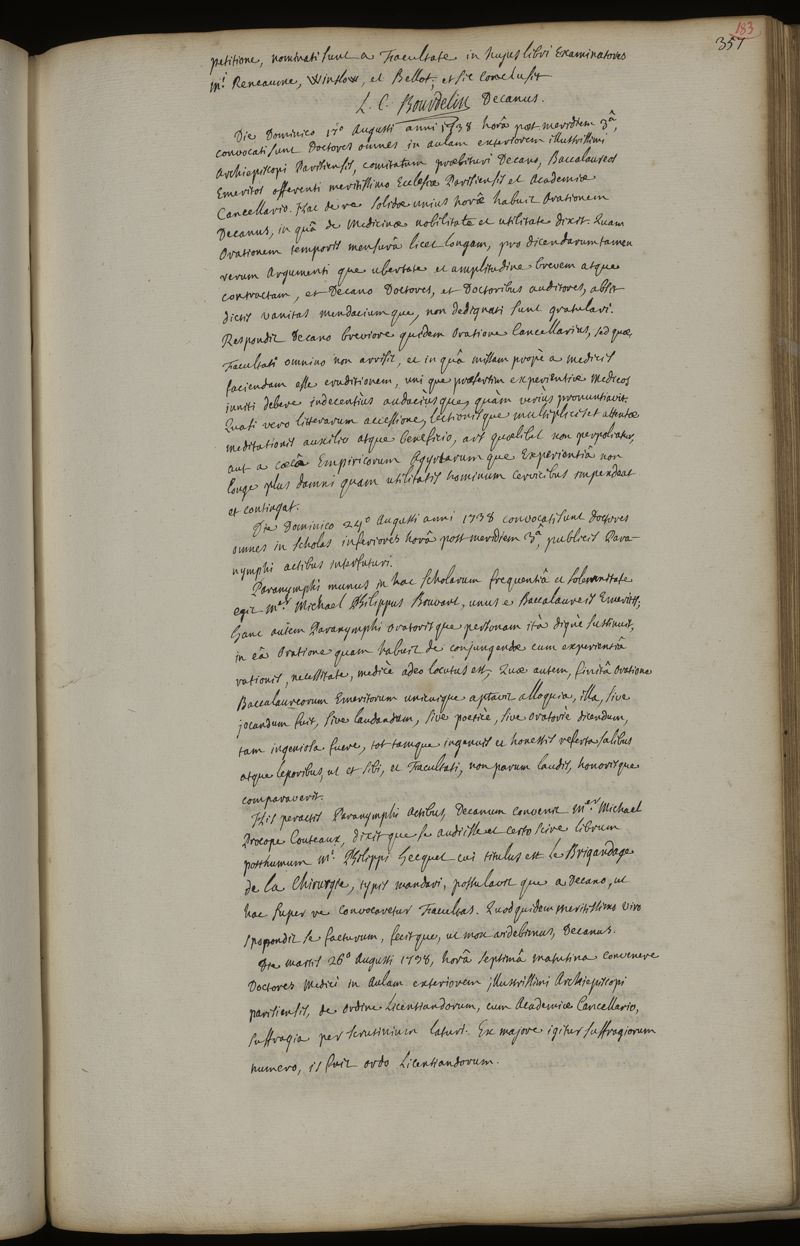 183
357
petitione, nominati sunt a Facultate in hujus libri Examinatores
Mi Reneaume, Winslow, et Bellot, et sic conclusit
L. C. Bourdelin Decanus.
Die Dominico 17o Augusti anni 1738 horâ post meridiem 3â,
convocati sunt Doctores omnes in aulam exteriorem illustrissimi
Archiepiscopi Parisiensis, comitatum præbituri Decano, Baccalaureos
Emeritos offerenti meritissimo Ecclesiæ Parisiensis et Academiæ
Cancellario. Hac de re solidæ unius horæ habuit Orationem
Decanus, in quâ de Medicinæ nobilitate et utilitate dixit. Quam
Orationem temporis mensurâ licet longam, pro dicendarum tamen
rerum Argumenti que ubertate et amplitudine brevem atque
contractam, et Decano Doctores, et Doctoribus auditores, absit
dictis vanitas mendacium que, non dedignati sunt gratulari.
Respondit Decano breviore quidem Oratione Cancellarius, sed quæ
Facultati omnino non arrisit, et in quâ missam propè a medicis
faciendam esse eruditionem, uni que præsertim experientiæ Medicos
inniti debere indecentiùs audaciusque, quàm veriùs pronuntiavit.
Quasi vero litterarum accessione, lectionisque multiplicis et attentæ
meditationis auxilio atque beneficio, ars quælibet non perpoliatur,
aut a cœcâ Empiricorum Agyrtarum que Experientiâ non
longe plus damni quam utilitatis hominum cervicibus impendeat
et contingat.
Die Dominico 24o Augusti anni 1738 convocati sunt doctores
omnes in scholas inferiores horâ post meridiem 3â, publicis Para-
nymphi actibus interfuturi.
Paranymphi munus in hac scholarum frequentiâ et solemnitate
egit Mer Michael Philippus Bouvart, unus e Baccalaureis Emeritis;
Hanc autem Paranymphi Oratoris que personam ità dignè sustinuit,
in eâ Oratione quam habuit de conjungendæ cum experientiâ
rationis, necessitate, medicè adeo locutus est; Quæ autem, finitâ Oratione
Baccalaureorum Emeritorum unicuique aptavit alloquia, illa, sive
jocandum fuit, sive laudandum, sive poeticè, sive oratoriè dicendum,
tam ingeniosa fuere, tot tamque ingenuis et honestis referta salibus
atque leporibus, ut et sibi, et Facultati, non parum laudis, honorisque
comparaverit.
His peractis Paranymphi Actibus, Decanum convenit Mer Michael
Procope Couteaux, dixit que se audiisse et certo scire librum
posthumum Mi Philippi Hecquet cui titulus est le Brigandage
de la Chirurgie, typis mandari, postulavit que a Decano, ut
hac super re convocaretur Facultas. Quod quidem meritissimo viro
spopondit se facturum, fecitque, ut mox videbimus, Decanus.
Die martis 26o Augusti 1738, horâ septimâ matutina convenere
Doctores Medici in Aulam exteriorem illustrissimi Archiepiscopi
parisiensis, de ordine Licentiandorum, cum Academiæ Cancellario,
suffragia per scrutinium laturi. Ex majore igitur suffragiorum
numero, is fuit ordo Licentiandorum.